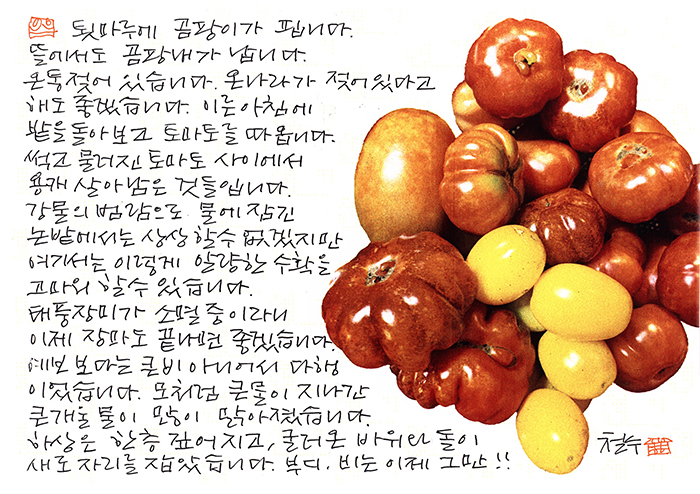 툇마루에 곰팡이가 핍니다.
뜰에서도 곰팡내가 납니다.
온통젖어 있습니다. 온나라가 젖어있다고
해도 좋겠습니다. 이른아침에
밭을돌아보고 토마토를 따옵니다.
썩고 물러진 토마토 사이에서
용케 살아남은 것들입니다.
강물의 범람으로 물에 잠긴
논밭에서는 상상할수 없겠지만
여기서는 이렇게 알량한 수확을
고마워 할수 있습니다.
태풍장미가 소멸중이라니
이제 장마도 끝내면 좋겠습니다.
예보보다는 큰비 아니어서 다행
이었습니다. 모처럼 큰물이 지나간
큰개울물이 많이 맑아졌습니다.
하상은 한층 깊어지고, 굴러온 바위와 돌이
새로 자리를 잡았습니다. 부디, 비는 이제 그만!!
철수